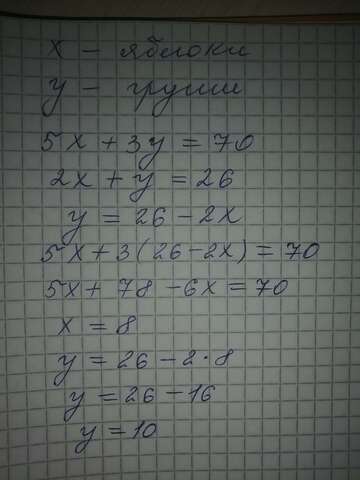 x – яблоки
y – груши
5x + 3y = 70
2x + y = 26
y = 26 – 2x
5x + 3(26 – 2x) = 70
5x + 78 – 6x = 70
x = 8
y = 26 – 2·8
y = 26 – 16
y = 10